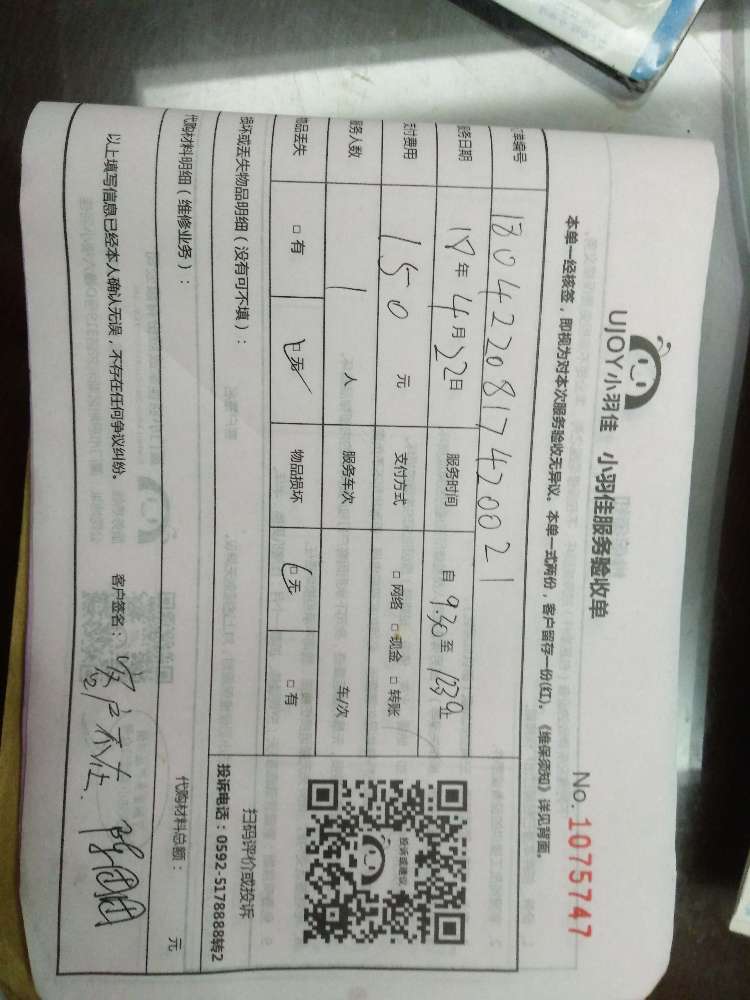 UJOY小羽佳 小羽佳服务验收单
No. 1075747
本单一经核签，即视为对本次服务验收无异议。本单一式两份，客户留存一份(红)。《维保须知》详见背面。
单编号 1804220817420021
务日期 18年4月22日 服务时间 自 9.30 至
付费用 150 元 支付方式 □ 网络 □ 现金 □ 转账
服务人数 1 人 服务车次 车/次
物品丢失 □ 有 □ 无 物品损坏 □ 无 □ 有
投诉或建议
扫码评价或投诉
投诉电话：0592-5178888转2
损坏或丢失物品明细（没有可不填）：
代购材料明细（维修业务）：
代购材料总额： 元
以上填写信息已经本人确认无误，不存在任何争议纠纷。 客户签名： 客户不在.